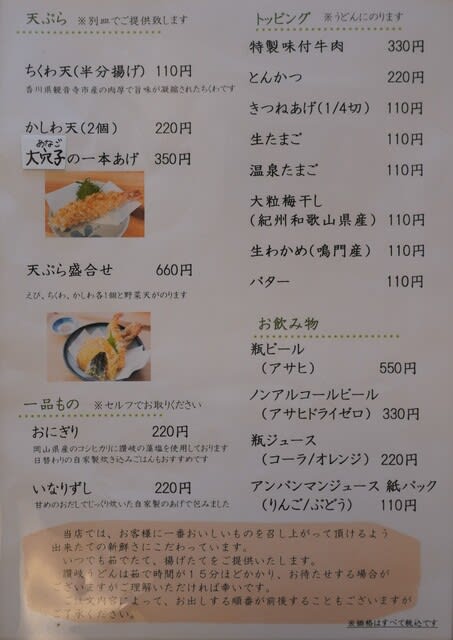 天ぷら ※別皿でご提供致します
ちくわ天(半分揚げ) 110円
香川県観音寺市産の肉厚で旨味が凝縮されたちくわです
かしわ天(2個) 220円
あなご
大穴子の一本あげ 350円
天ぷら盛合せ 660円
えび、ちくわ、かしわ各1個と野菜天がのります
一品もの ※セルフでお取りください
おにぎり 220円
岡山県産のコシヒカリに讃岐の藻塩を使用しております
日替わりの自家製炊き込みごはんもおすすめです
いなりずし 220円
甘めのおだしでじっくり炊いた自家製のあげで包みました
トッピング ※うどんにのります
特製味付牛肉 330円
とんかつ 220円
きつねあげ(1/4切) 110円
生たまご 110円
温泉たまご 110円
大粒梅干し
(紀州和歌山県産) 110円
生わかめ(鳴門産) 110円
バター 110円
お飲み物
瓶ビール
(アサヒ) 550円
ノンアルコールビール
(アサヒドライゼロ) 330円
瓶ジュース
(コーラ/オレンジ) 220円
アンパンマンジュース 紙パック
(りんご/ぶどう) 110円
当店では、お客様に一番おいしいものを召し上がって頂けるよう
出来たての新鮮さにこだわっています。
いつでも茹でたて、揚げたてをご提供いたします。
讃岐うどんは茹で時間が15分ほどかかり、お待たせする場合が
ございますがご理解いただければ幸いです。
ご注文内容によって、お出しする順番が前後することもございますが
ご了承ください。
※価格はすべて税込です